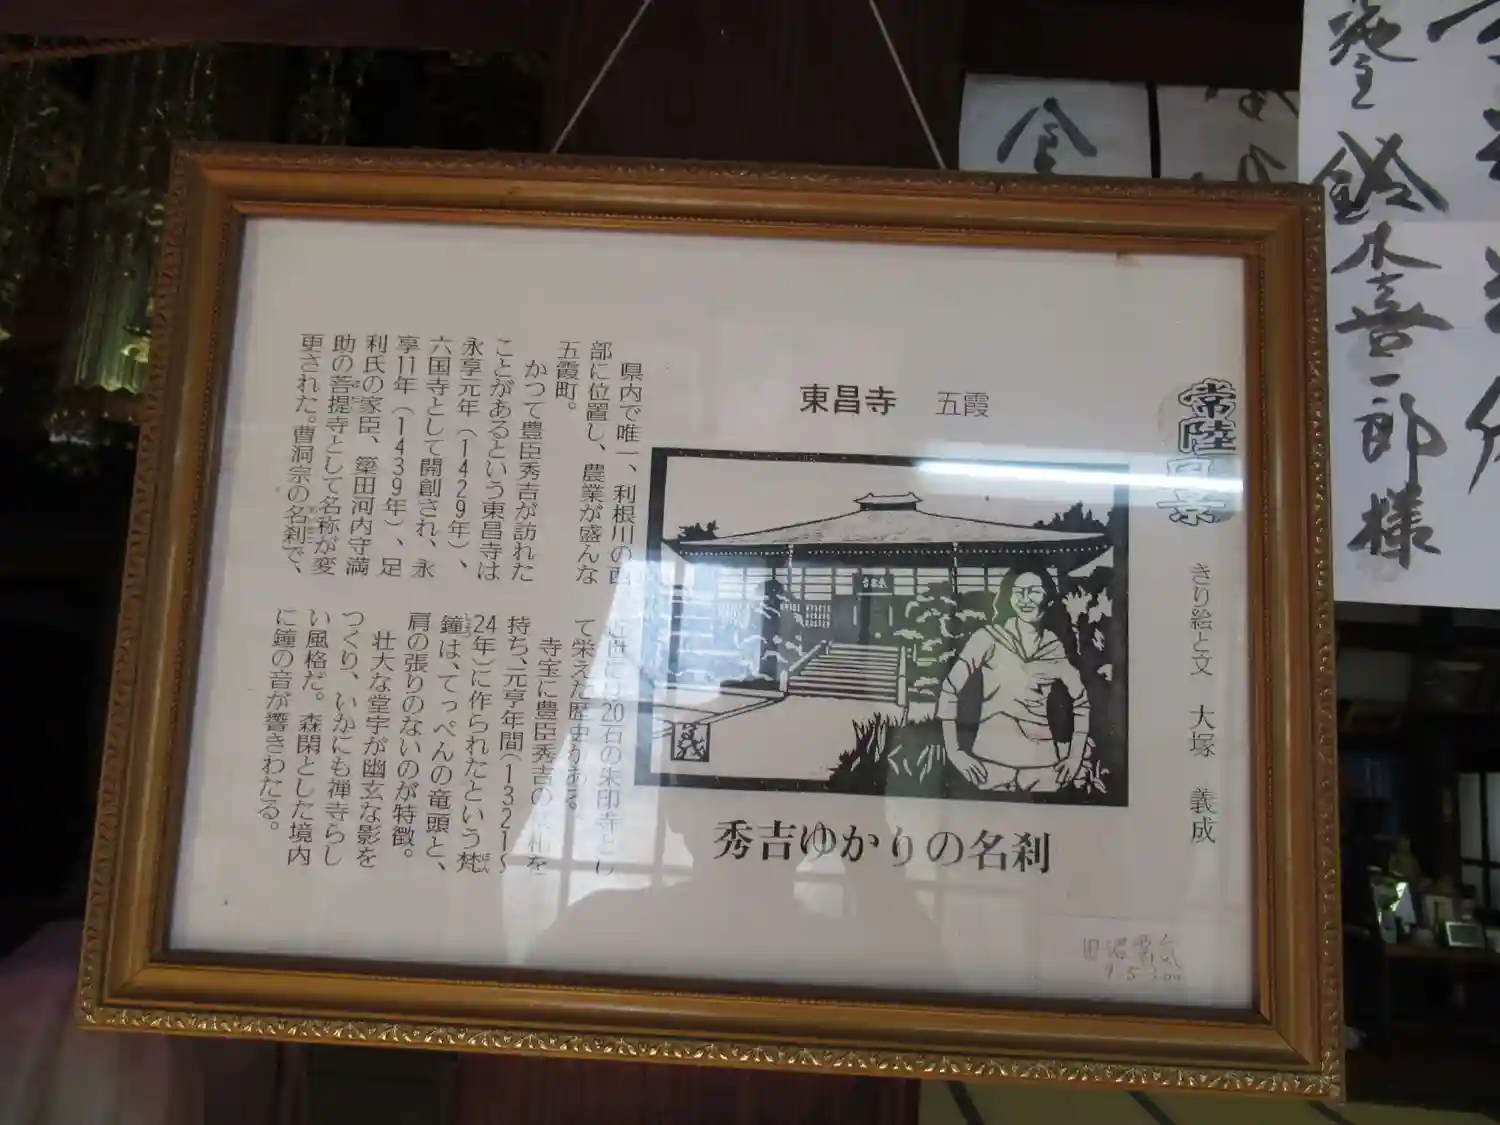 常陸風景
きり絵と文　大塚　義成
東昌寺　五霞
東昌寺
秀吉ゆかりの名刹
県内で唯一、利根川の西
部に位置し、農業が盛んな
五霞町。
かつて豊臣秀吉が訪れた
ことがあるという東昌寺は
永享元年（1429年）、
六国寺として開創され、永
享11年（1439年）、足
利氏の家臣、簗田河内守満
助の菩提寺として名称が変
更された。曹洞宗の名刹で、
20石の朱印寺とし
て栄えた歴史がある。
寺宝に豊臣秀吉の
を
持ち、元亨年間（1321〜
24年）に作られたという梵
鐘は、てっぺんの竜頭と、
肩の張りのないのが特徴。
壮大な堂宇が幽玄な影を
つくり、いかにも禅寺らし
い風格だ。森閑とした境内
に鐘の音が響きわたる。
鈴木喜一郎様